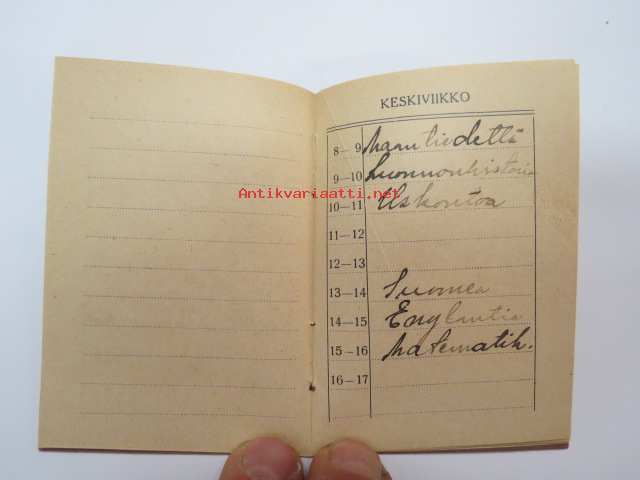 KESKIVIIKKO
8—9 Maantiedettä
9—10 Luonnonhistoria
10—11 Uskontoa
11—12
12—13
13—14 Suomea
14—15 Englantia
15—16 Matematik.
16—17
Antikvariaatti.net